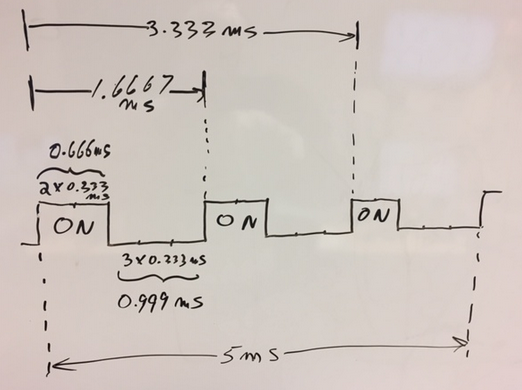 3.333 ms
1.6667
ms
0.666ms
2 x 0.333
ms
ON
ON
ON
3 x 0.333 ms
0.999 ms
5 ms